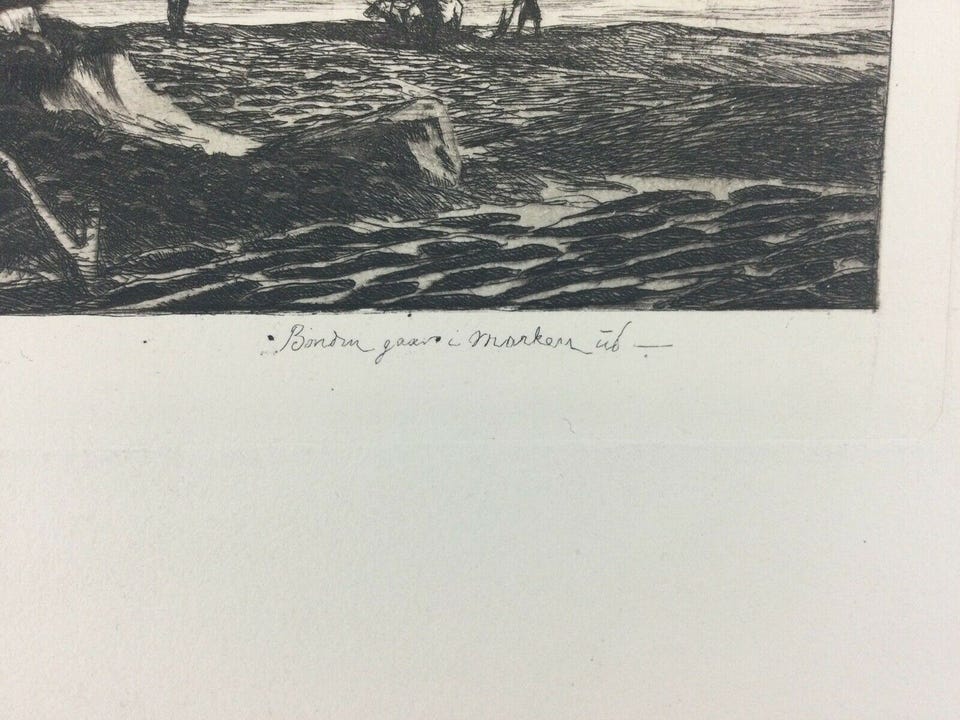 Bonden gaar i Marken ud —